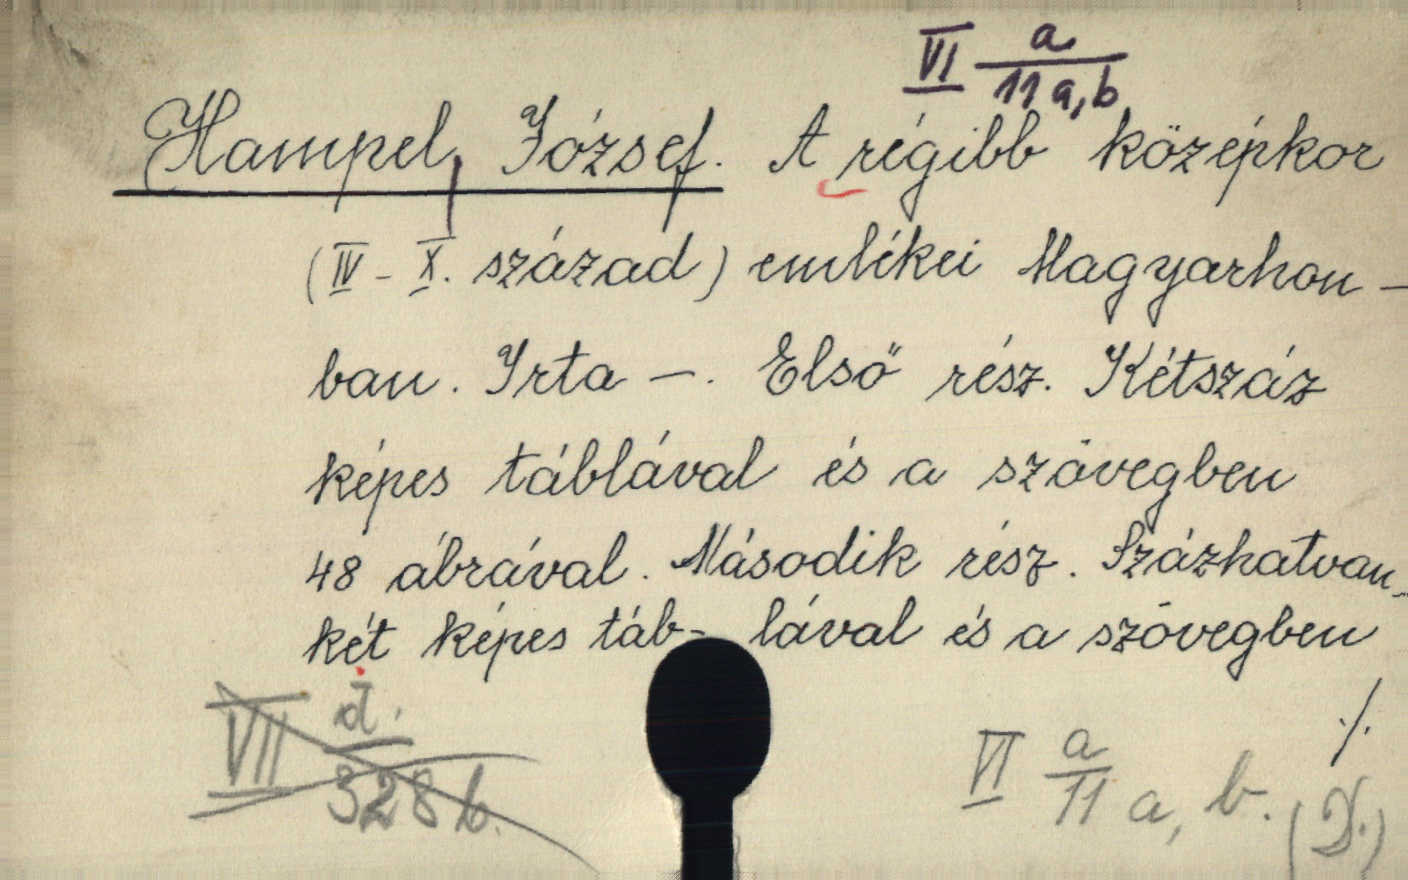 VI a/11 a, b
Hampel, József. A régibb középkor
(IV - X. század) emlékei Magyarhon-
ban. Irta —. Első rész. Kétszáz
képes táblával és a szövegben
48 ábrával. Második rész. Százhatvan-
két képes táb- lával és a szövegben
./.
VII d./328 b.
VI a/11 a, b. (D.)